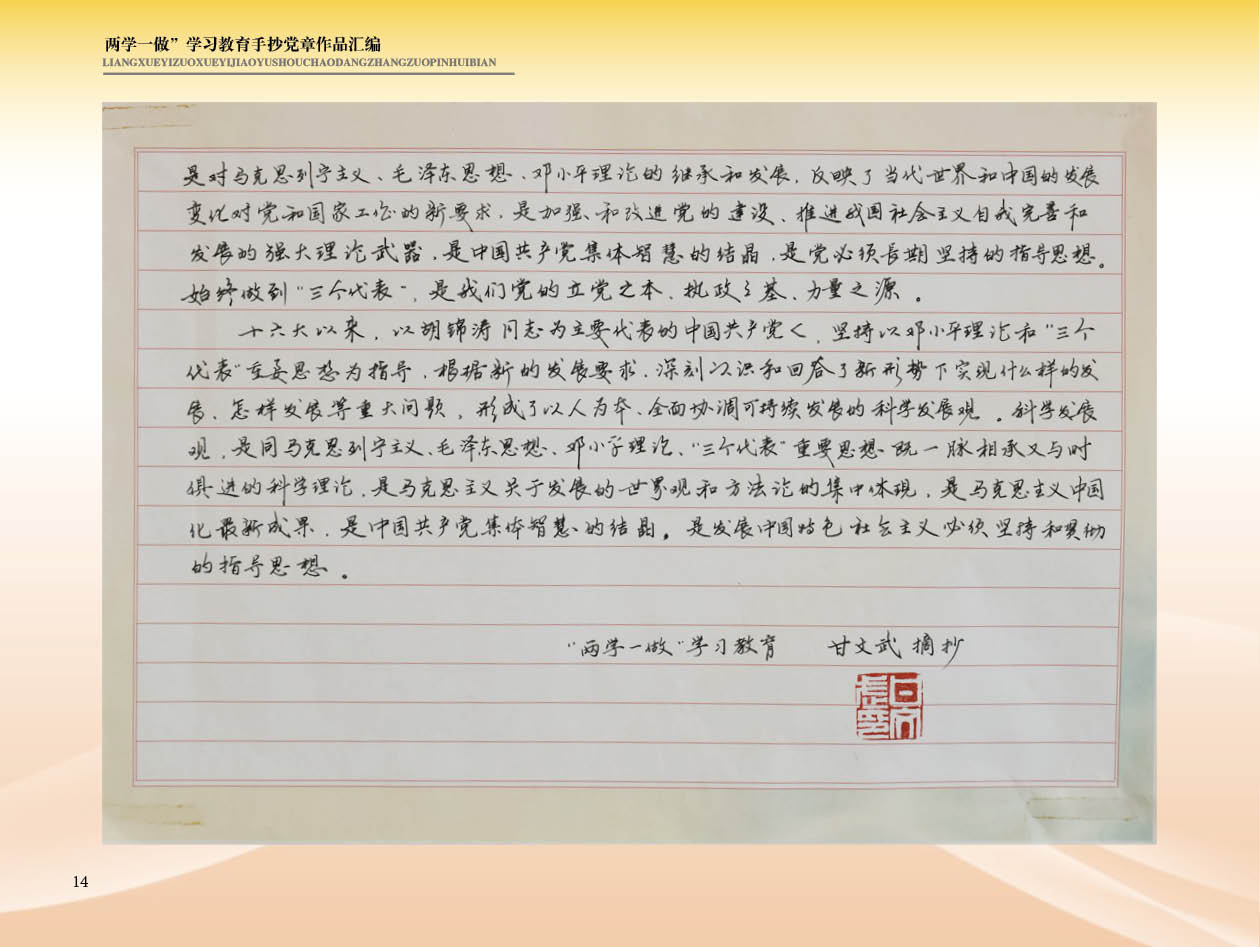 两学一做”学习教育手抄党章作品汇编
LIANGXUEYIZUOXUEYIJIAOYUSHOUCHAODANGZHANGZUOPINHUIBIAN
是对马克思列宁主义、毛泽东思想、邓小平理论的继承和发展，反映了当代世界和中国的发展
变化对党和国家工作的新要求，是加强和改进党的建设、推进我国社会主义自我完善和
发展的强大理论武器，是中国共产党集体智慧的结晶，是党必须长期坚持的指导思想。
始终做到“三个代表”，是我们党的立党之本、执政之基、力量之源。
十六大以来，以胡锦涛同志为主要代表的中国共产党人，坚持以邓小平理论和“三个
代表”重要思想为指导，根据新的发展要求，深刻认识和回答了新形势下实现什么样的发
展、怎样发展等重大问题，形成了以人为本、全面协调可持续发展的科学发展观。科学发展
观，是同马克思列宁主义、毛泽东思想、邓小平理论、“三个代表”重要思想既一脉相承又与时
俱进的科学理论，是马克思主义关于发展的世界观和方法论的集中体现，是马克思主义中国
化最新成果，是中国共产党集体智慧的结晶，是发展中国特色社会主义必须坚持和贯彻
的指导思想。
“两学一做”学习教育 甘文武 摘抄
14